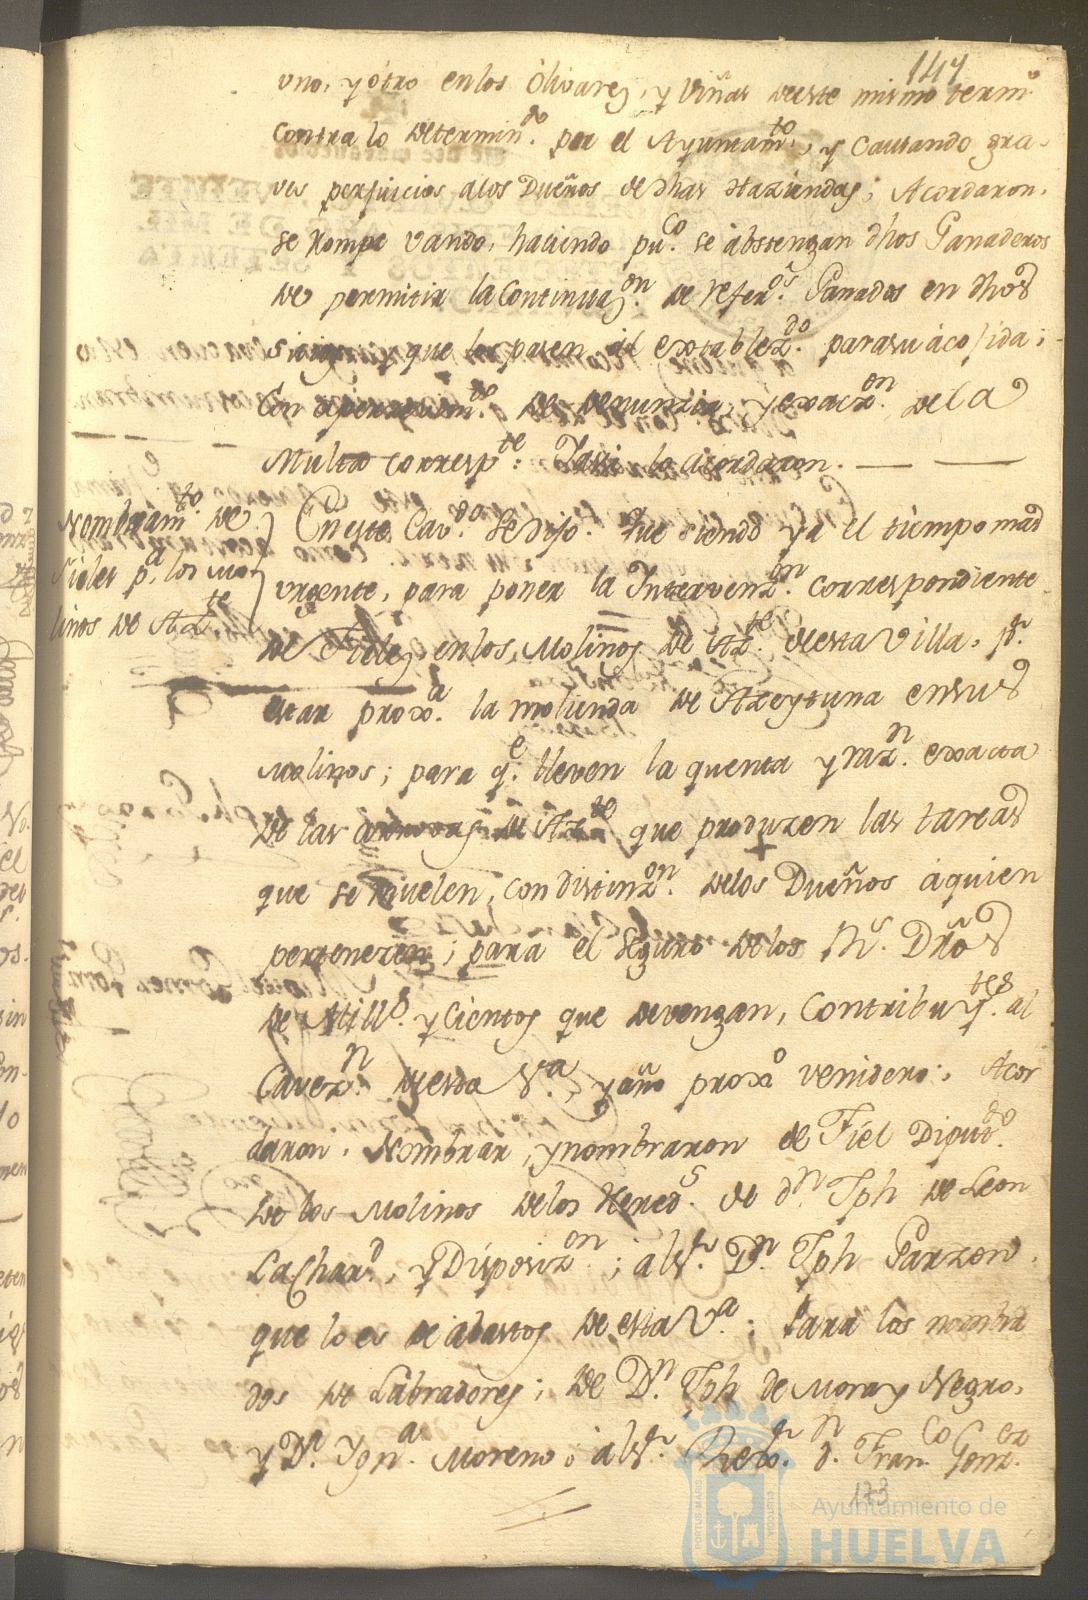 147
uno, y ótro en los Ólivares, y Viñas deeste mismo termº
contra lo determindo. por el Ayuntamto., y Causando gra-
ves perjuicios alos Dueños de dhas Haziendas; Acordaron.
se Rompa vando, haciendo puco. se abstengan dhos Ganaderos
de permitir la Continuazon. de referos. Ganados en dhos
sitios y que los pasen al establezdo. para su ácojida;
Con apercevimto. de denunzia, y exaczon. dela
Multa correspte: Y assi lo acordaron.
Nombramto. de
Fieles pa. los Mo-
linos de Azte
En este Cavdo. Se Dijo. Que siendo ya el tiempo mas
urgente, para poner la Intervenzon. correspondiente
de Fieles en los Molinos de Azte. deesta Villa, pr.
estar proxa. la molienda de Azeytuna en sus
Molinos; para qe. lleven la quenta y razn. exacta
de las arrovas de Azte que produzen las tareas
que se muelen, con distinzon. delos Dueños áquien
pertenezen; para el seguro delos Rs. Dros
de Millo. y Cientos que devengan, Contribuytes. al
Cavezn. deesta Va., y año proxº venidero; Acor
daron. Nombrar, y nombraron de Fiel Diputdo.
de los Molinos delos Hereds. de dn. Jph de Leon
Lacharo., y Disposizon.; al sr. Dn. Jph Garzon,
que lo es de abastos de esta Va.; Para los nombra
dos de Labradores; de Dn. Jph de Mora y Negro,
y Dn. Ygna. Moreno; al sr. Rexr. dn. Franco Gonz.
173
Ayuntamiento de
HUELVA
PORTUS MARIS
CUSTODIA